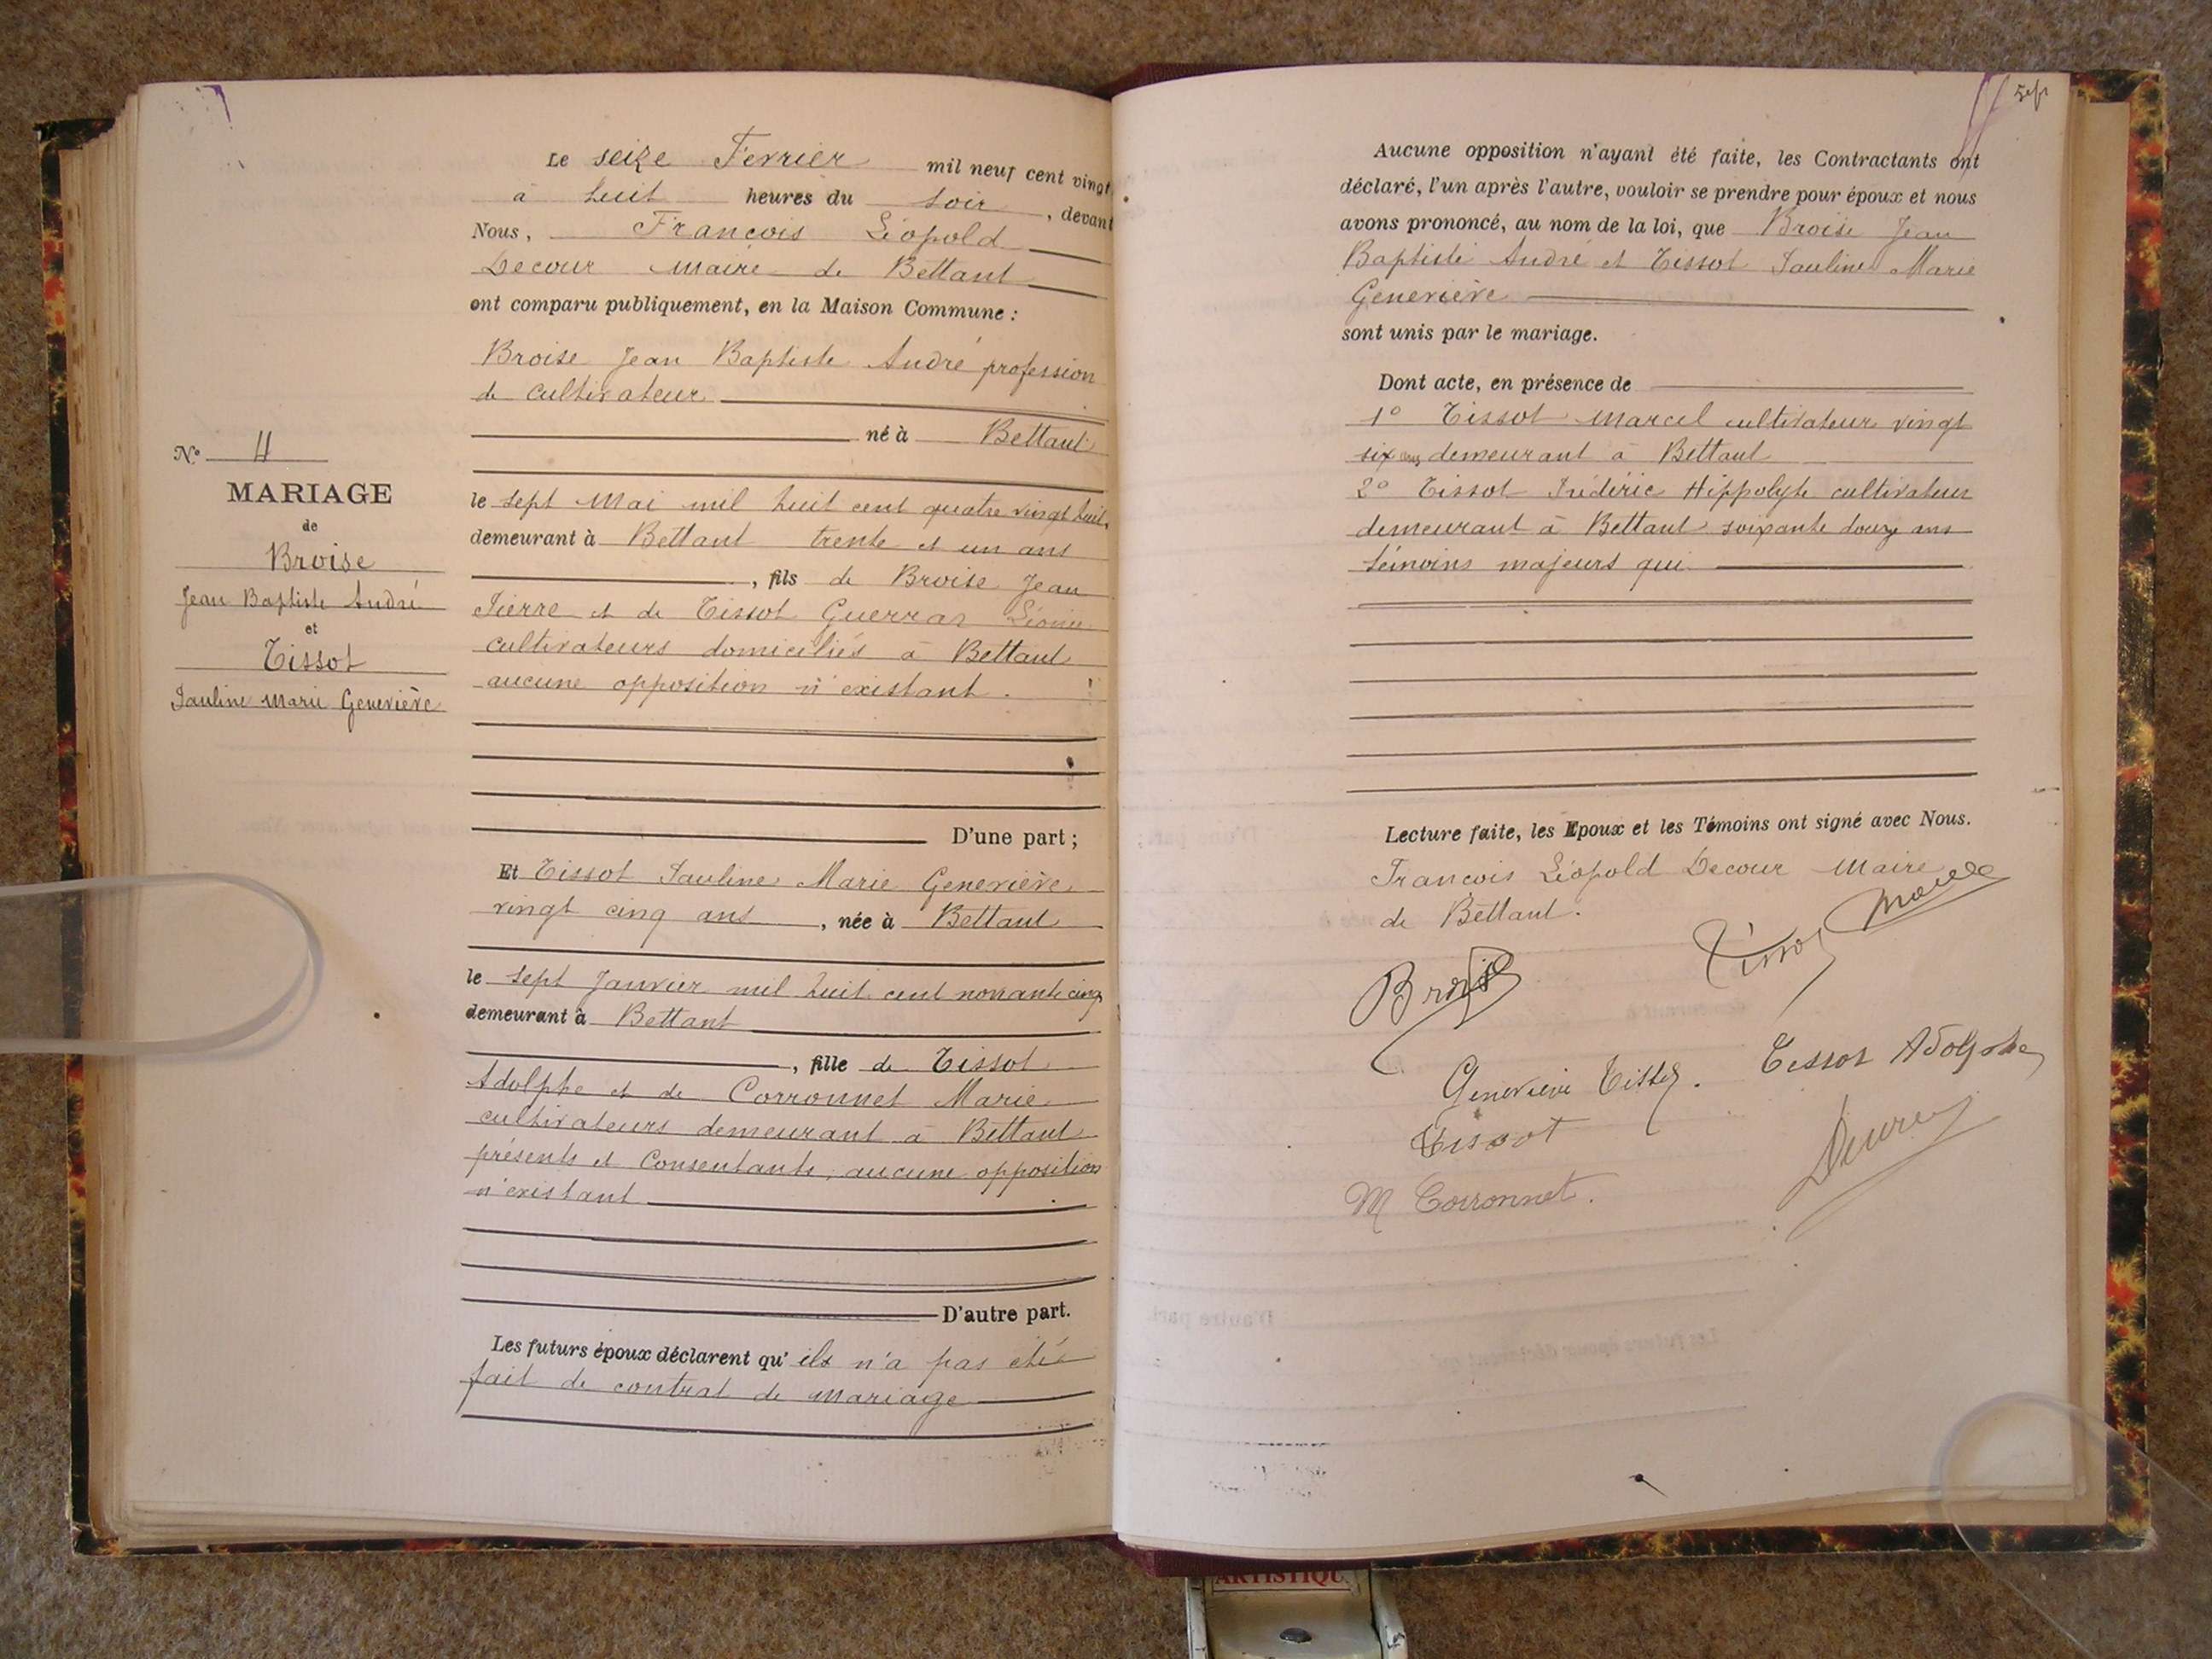 Le seize Fevrier mil neuf cent vingt
à huit heures du soir, devant
Nous, François Léopold
Decour Maire de Bettant
ont comparu publiquement, en la Maison Commune :
Broise Jean Baptiste André profession
de cultivateur
né à Bettant
le sept Mai mil huit cent quatre vingt huit,
demeurant à Bettant trente et un ans
, fils de Broise Jean
Pierre et de Tissot Guerraz Léonie
cultivateurs domiciliés à Bettant
aucune opposition n'existant.
D'une part ;
Nº 4
MARIAGE
de
Broise
Jean Baptiste André
et
Tissot
Pauline Marie Geneviève
Et Tissot Pauline Marie Geneviève
vingt cinq ans, née à Bettant
le sept Janvier mil huit cent nonante cinq
demeurant à Bettant
, fille de Tissot
Adolphe et de Corronnet Marie
cultivateurs demeurant à Bettant
présents et Consentants, aucune opposition
n'existant
D'autre part.
Les futurs époux déclarent qu' ils n'a pas été
fait de contrat de mariage
Aucune opposition n'ayant été faite, les Contractants ont
déclaré, l'un après l'autre, vouloir se prendre pour époux et nous
avons prononcé, au nom de la loi, que Broise Jean
Baptiste André et Tissot Pauline Marie
Geneviève
sont unis par le mariage.
Dont acte, en présence de
1º Tissot Marcel cultivateur vingt
six ans demeurant à Bettant
2º Tissot Frédéric Hippolyte cultivateur
demeurant à Bettant soixante douze ans
témoins majeurs qui
Lecture faite, les Epoux et les Témoins ont signé avec Nous.
François Léopold Decour Maire
de Bettant.
Tissot Marcel
Broise
Geneviève Tissot. Tissot Adolphe
Tissot
M Corronnet.
ARTISTIQU